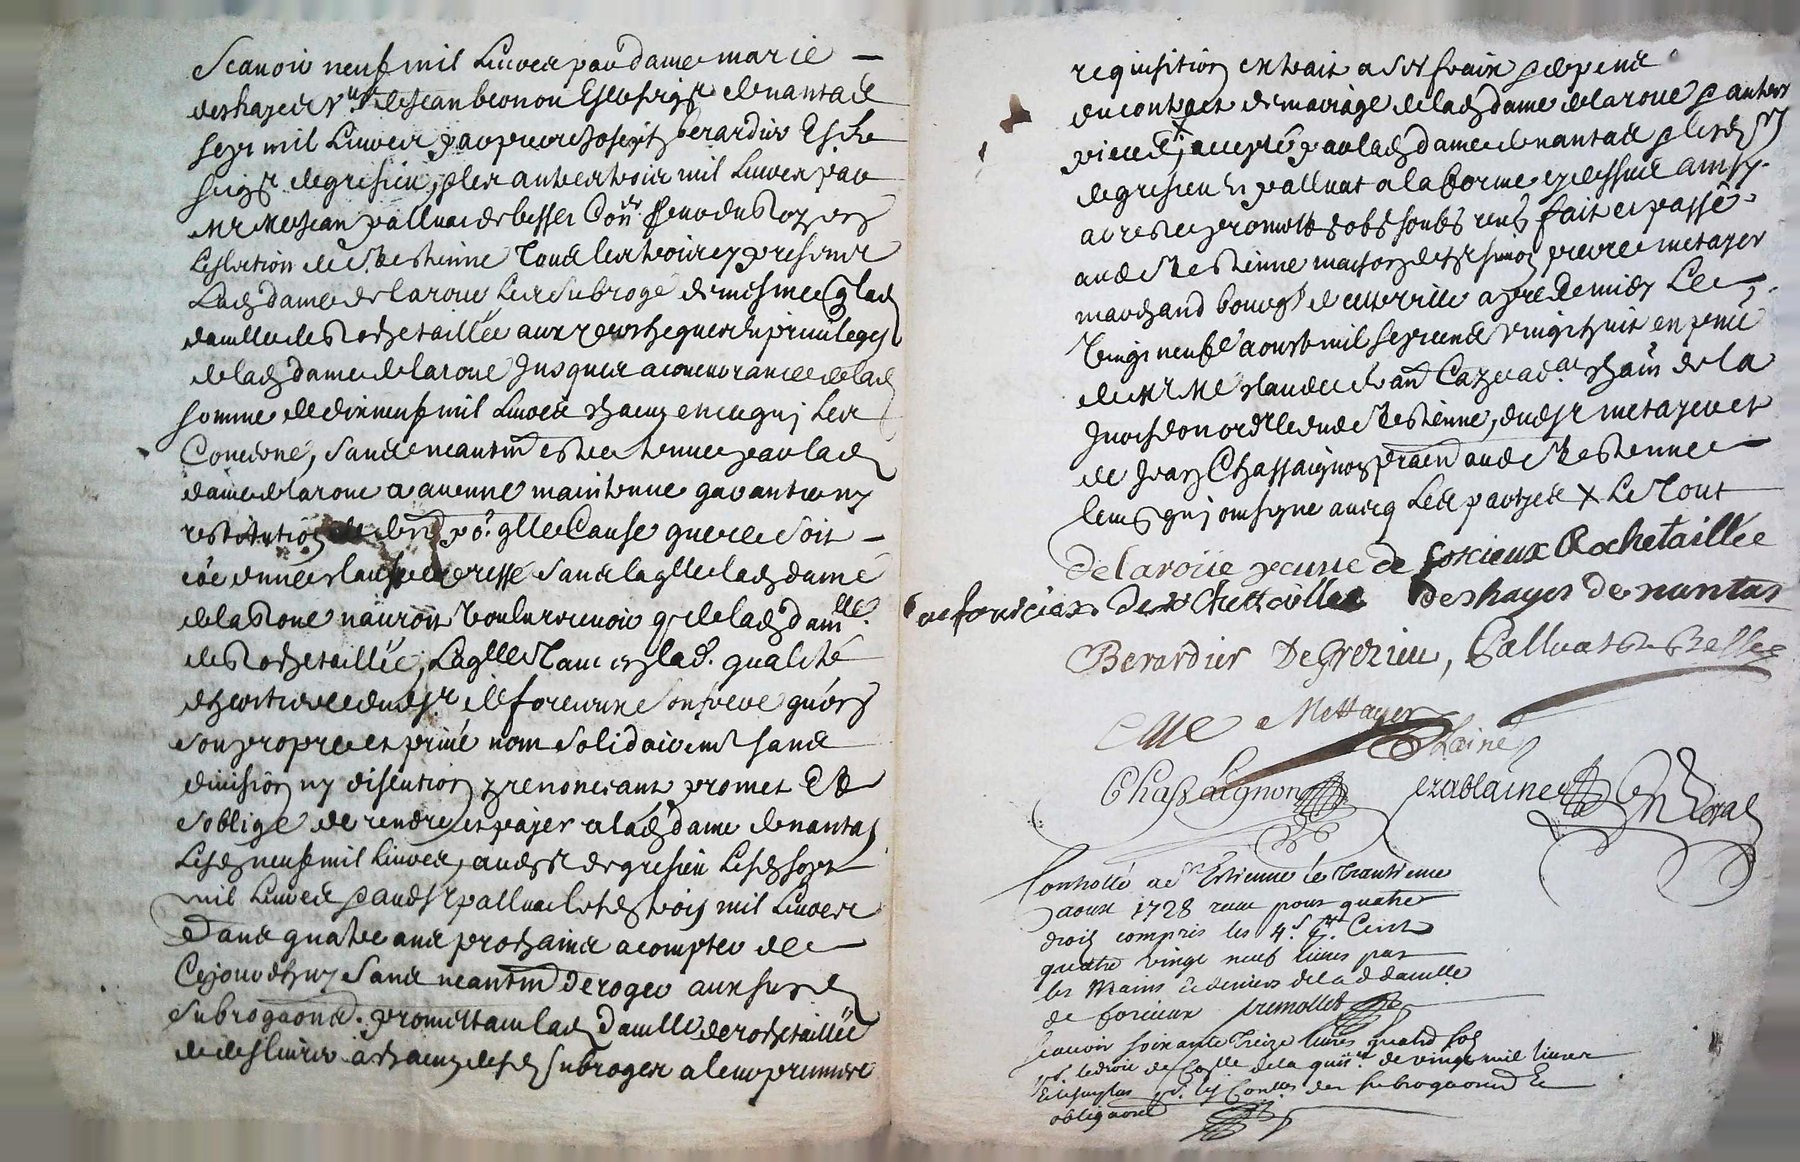 Scavoir neuf mil Livres par dame marie
deshayes v.ve de Jean beonon Escr seigr de nantas
sept mil Livres par pierre Joseph berardier Escr
seigr de gresieu, et les autres trois mil Livres par
Mr Me Jean palluat de besset Conr. du Roy en
Leslection de St Estienne Tous les trois ypresents
Lad dame de laroue Les subroge de mesme lad
damlle de Rochetaillée aux ypotheques et privileges
de lad dame de laroue Jusques a concurrance de lad
somme de dixneuf mil Livres chacun en ce qui Les
Concerne, sans neantm estre tenue par lad
dame de laroue a aucune maintenue garantie ny
restitution de den po.r qlle Cause que ce soit
sans laqlle lad dame
de la Roue n'auroit voulu recevoir de lad damlle
de Rochetaillée, Laqlle Tant en lad. qualité
d'heritiere dud sr de forcieux son frere qu'en
son propre et privé nom solidairemt sans
division ny discution y renoncant promet Et
s'oblige de rendre et payer a lad dame de nantas
Lesd neuf mil Livres, aud sr de gresieu Lesd sept
mil Livres et aud sr palluat lesd trois mil Livres
Dans quatre ans prochains a compter de
Cejourdhuy sans neantm deroger aux susd
subrogaons. promettant lad Damlle de rochetaillée
de deslivrer a chacun desd subroges a leur premiere
requisition extrait a ses fraix et depens
du contract de mariage de lad dame de laroue et autres
pieces, accepté par lad dame de nantas et lesd srs
de gresieu et palluat a la forme cydessus ainsy
acresté promott obt soubs renf fait et passé
aud St Estienne maison de sr pierre metayer
marchand bourgs de cette ville apres midy Le
vingt neuf aoust mil sept cent vingt huit en pnce
de Mr Me Claude
dud St Estienne, dud sr metayer et
de Jean Chassaignon praen aud St Estienne
lemsg qui ont signe avecq Les parties X Le Tout
De laroüe veuve de forcieux Rochetaillée
de forcieux De Rochettaillee deshayes de nantas
Berardier De Grezieu, Palluat De Besset
Mettayer
Chassaignon
Controllé a St Estienne le Trantieme
aoust 1728 recu pour quatre
droits compris les 4 s. pr. Cent
quatre vingt neuf livres par
les mains et deniers de la d damlle
de forcieux
scavoir soixante Treize livres quatre sols
pr. le droit de Coplle de la quitt. de vingt mil livres
Et le surplus pr. les Conlles des subrogaons Et
obligaons